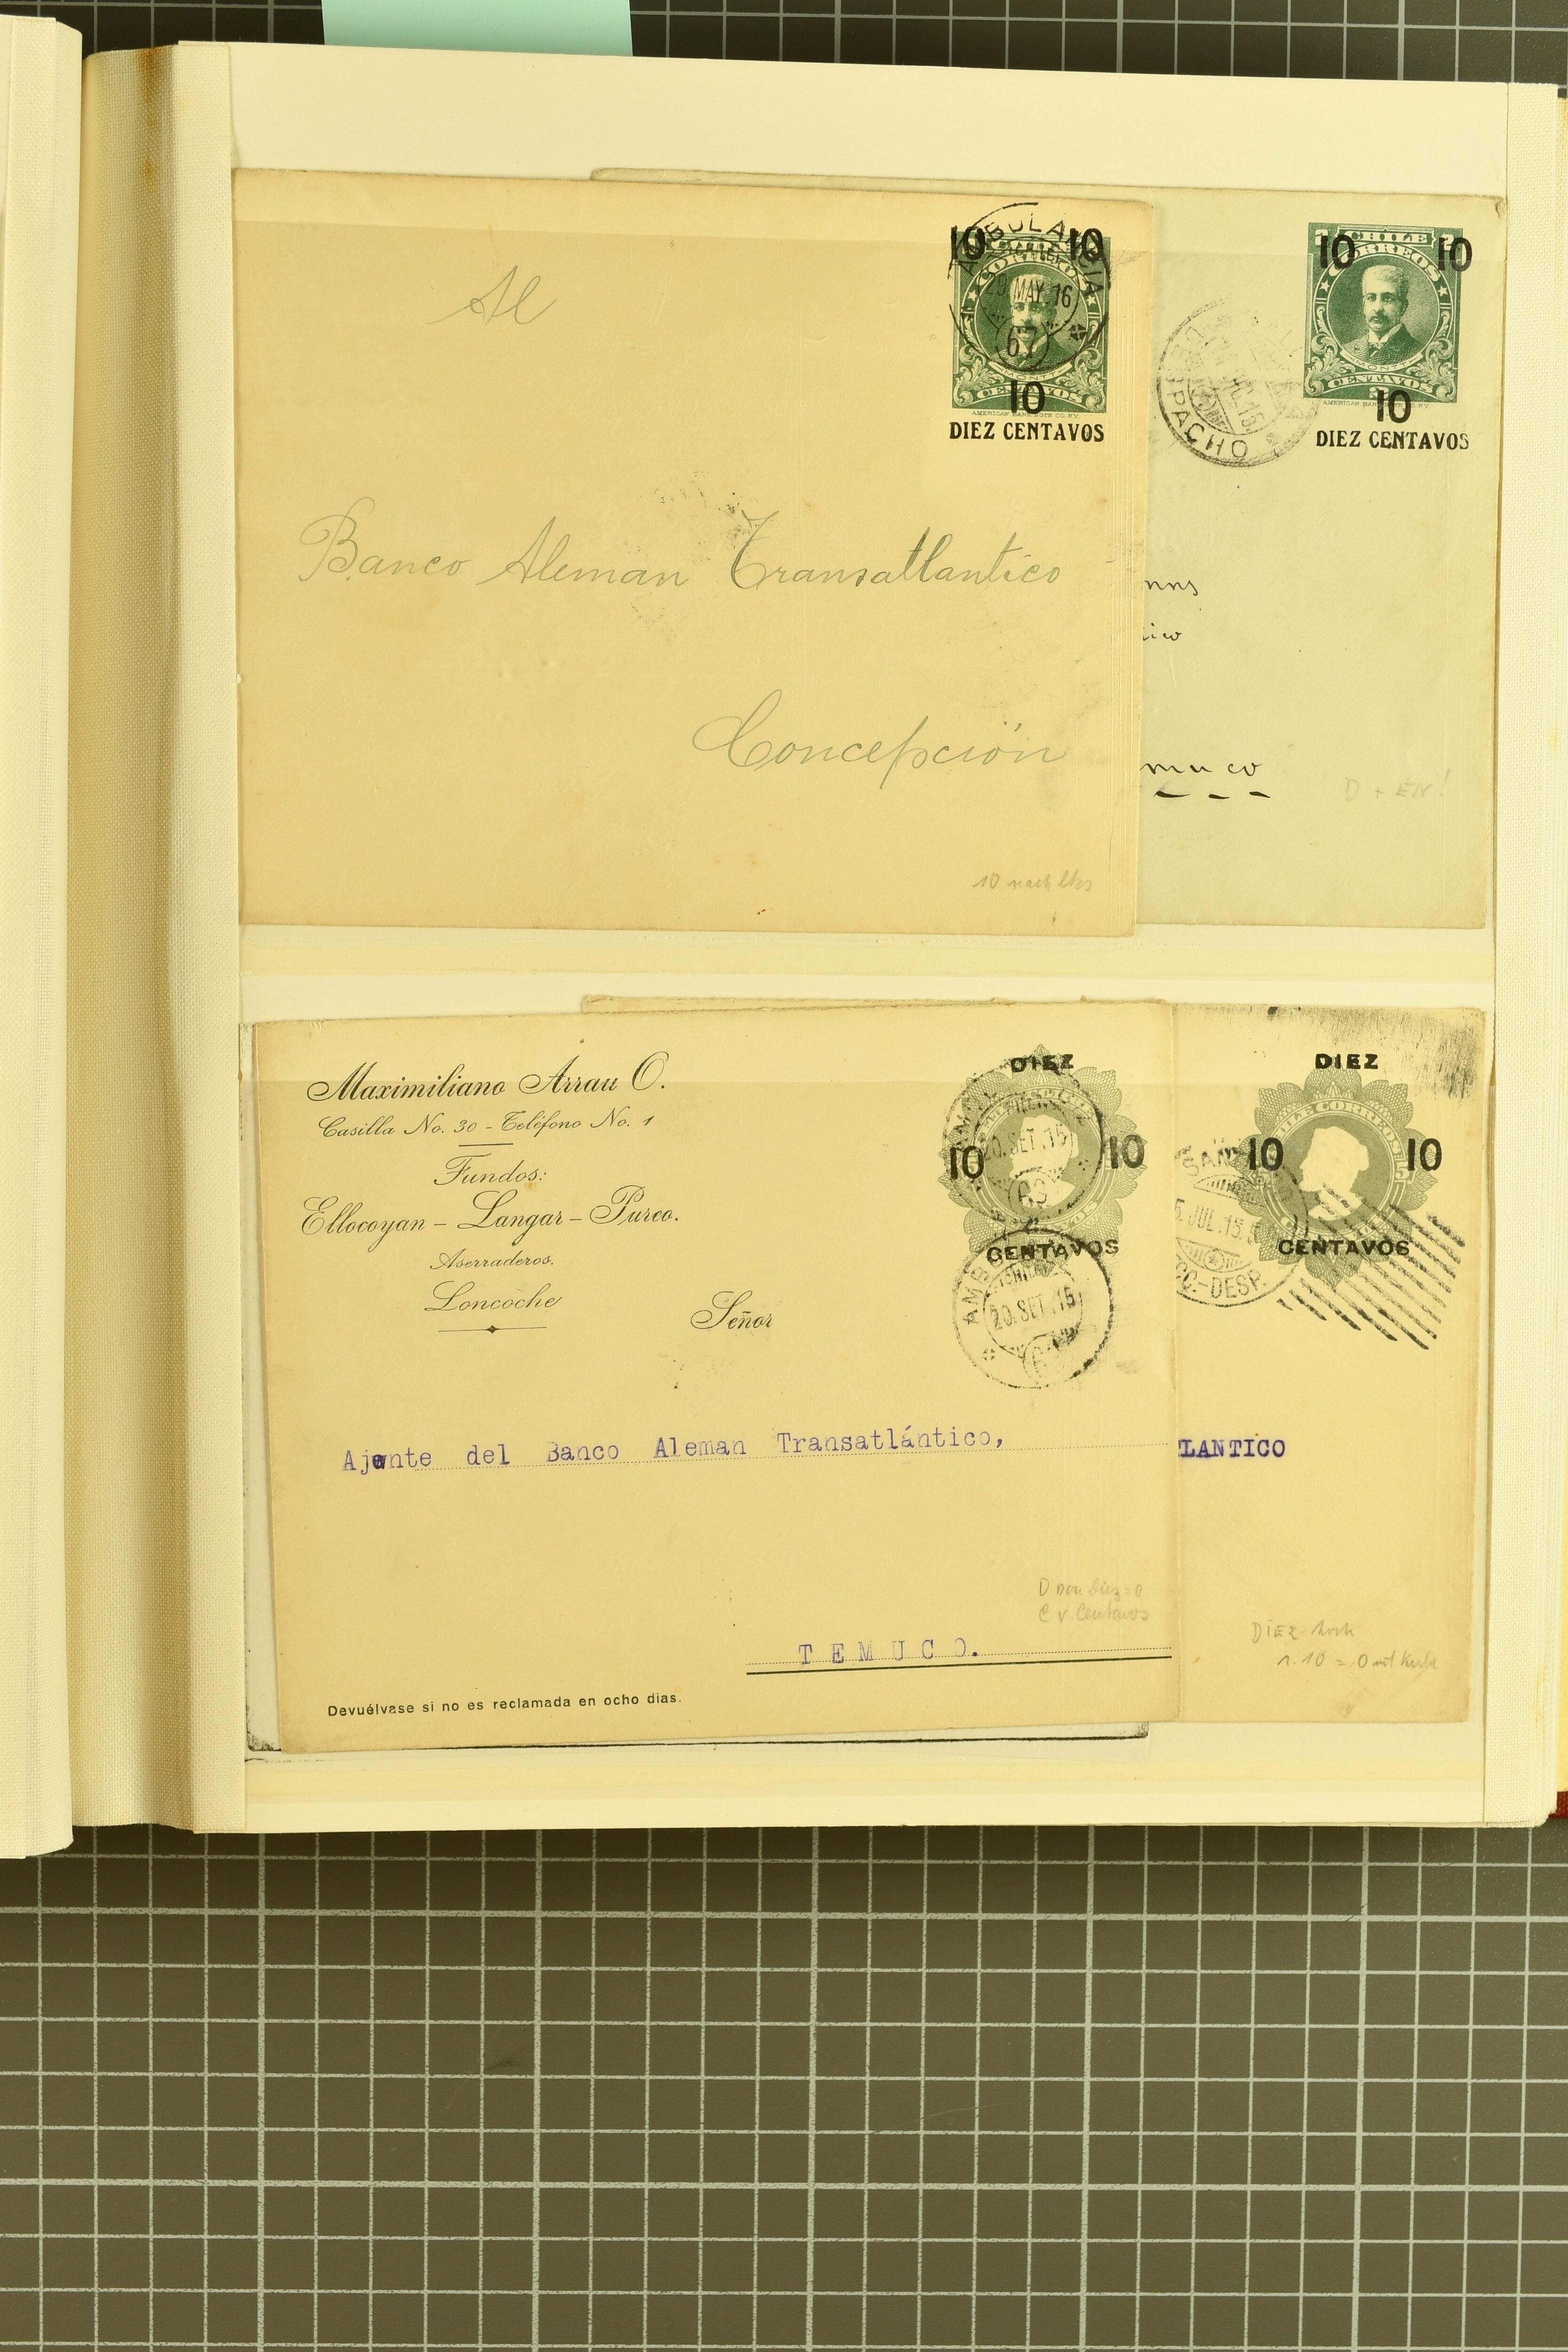 Al
Banco Aleman Transatlantico
Concepción
10 nach lks
10 10
AMBULANCIA
29 MAY. 16
67
CORREOS
MONTT
CENTAVOS
AMERICAN BANK NOTE CO. N.Y.
10
DIEZ CENTAVOS
CHILE
10 10
CORREOS
MONTT
CENTAVOS
AMERICAN BANK NOTE CO. N.Y.
10
DIEZ CENTAVOS
PACHO
nns
ico
muco
D + EN!
Maximiliano Arrau O.
Casilla No. 30 - Teléfono No. 1
Fundos:
Ellocoyan - Langar - Pureo.
Aserraderos.
Loncoche
Señor
Ajente del Banco Aleman Transatlántico,
TEMUCO.
Devuélvase si no es reclamada en ocho dias.
DIEZ
20. SET. 15
10 10
CENTAVOS
AMB
20. SET. 15
D von Diez = 0
C v. Centavos
DIEZ
CHILE CORREOS
10 10
CENTAVOS
SAN
JUL. 15
CC.-DESP.
LANTICO
DIEZ hoch
r. 10 = 0 mit Kerbe